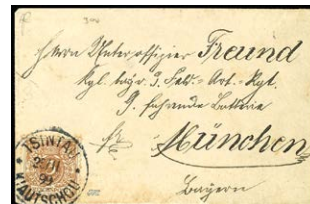 Herrn Unteroffizier Freund
Kgl. bayr. 9. Feld-Art.-Rgt.
9. fahrende Batterie
München
Bayern
TSINTAU
KIAUTSCHOU